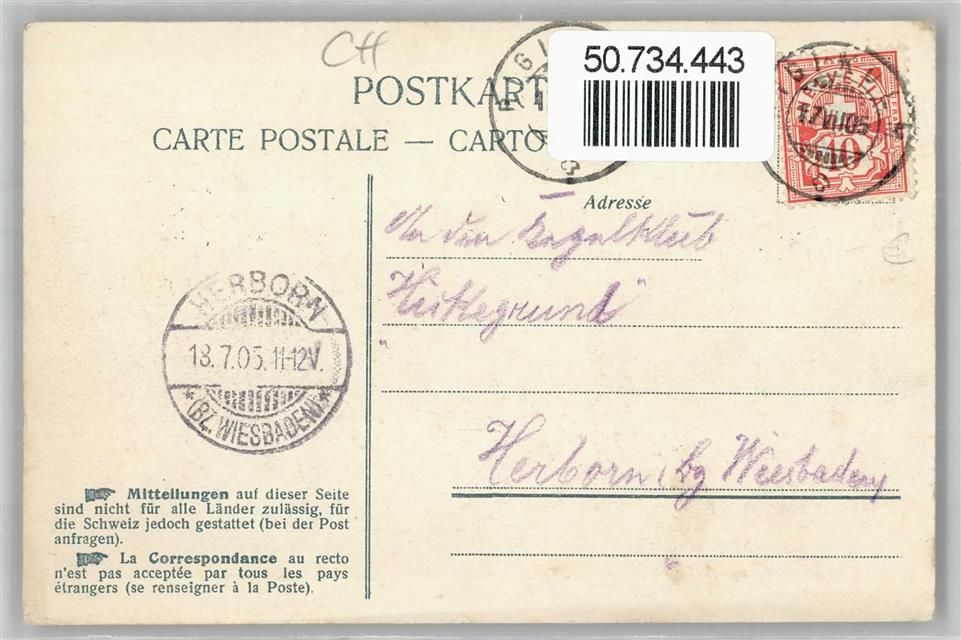 CH
50.734.443
POSTKART
CARTE POSTALE — CARTO
RIGI
17 VII 05
10
Adresse
An den Kegelklub
"Hirkegrund"
HERBORN
18.7.05.11-12V.
* (BZ. WIESBADEN) *
Herborn, bz Wiesbaden
Mitteilungen auf dieser Seite
sind nicht für alle Länder zulässig, für
die Schweiz jedoch gestattet (bei der Post
anfragen).
La Correspondance au recto
n'est pas acceptée par tous les pays
étrangers (se renseigner à la Poste).